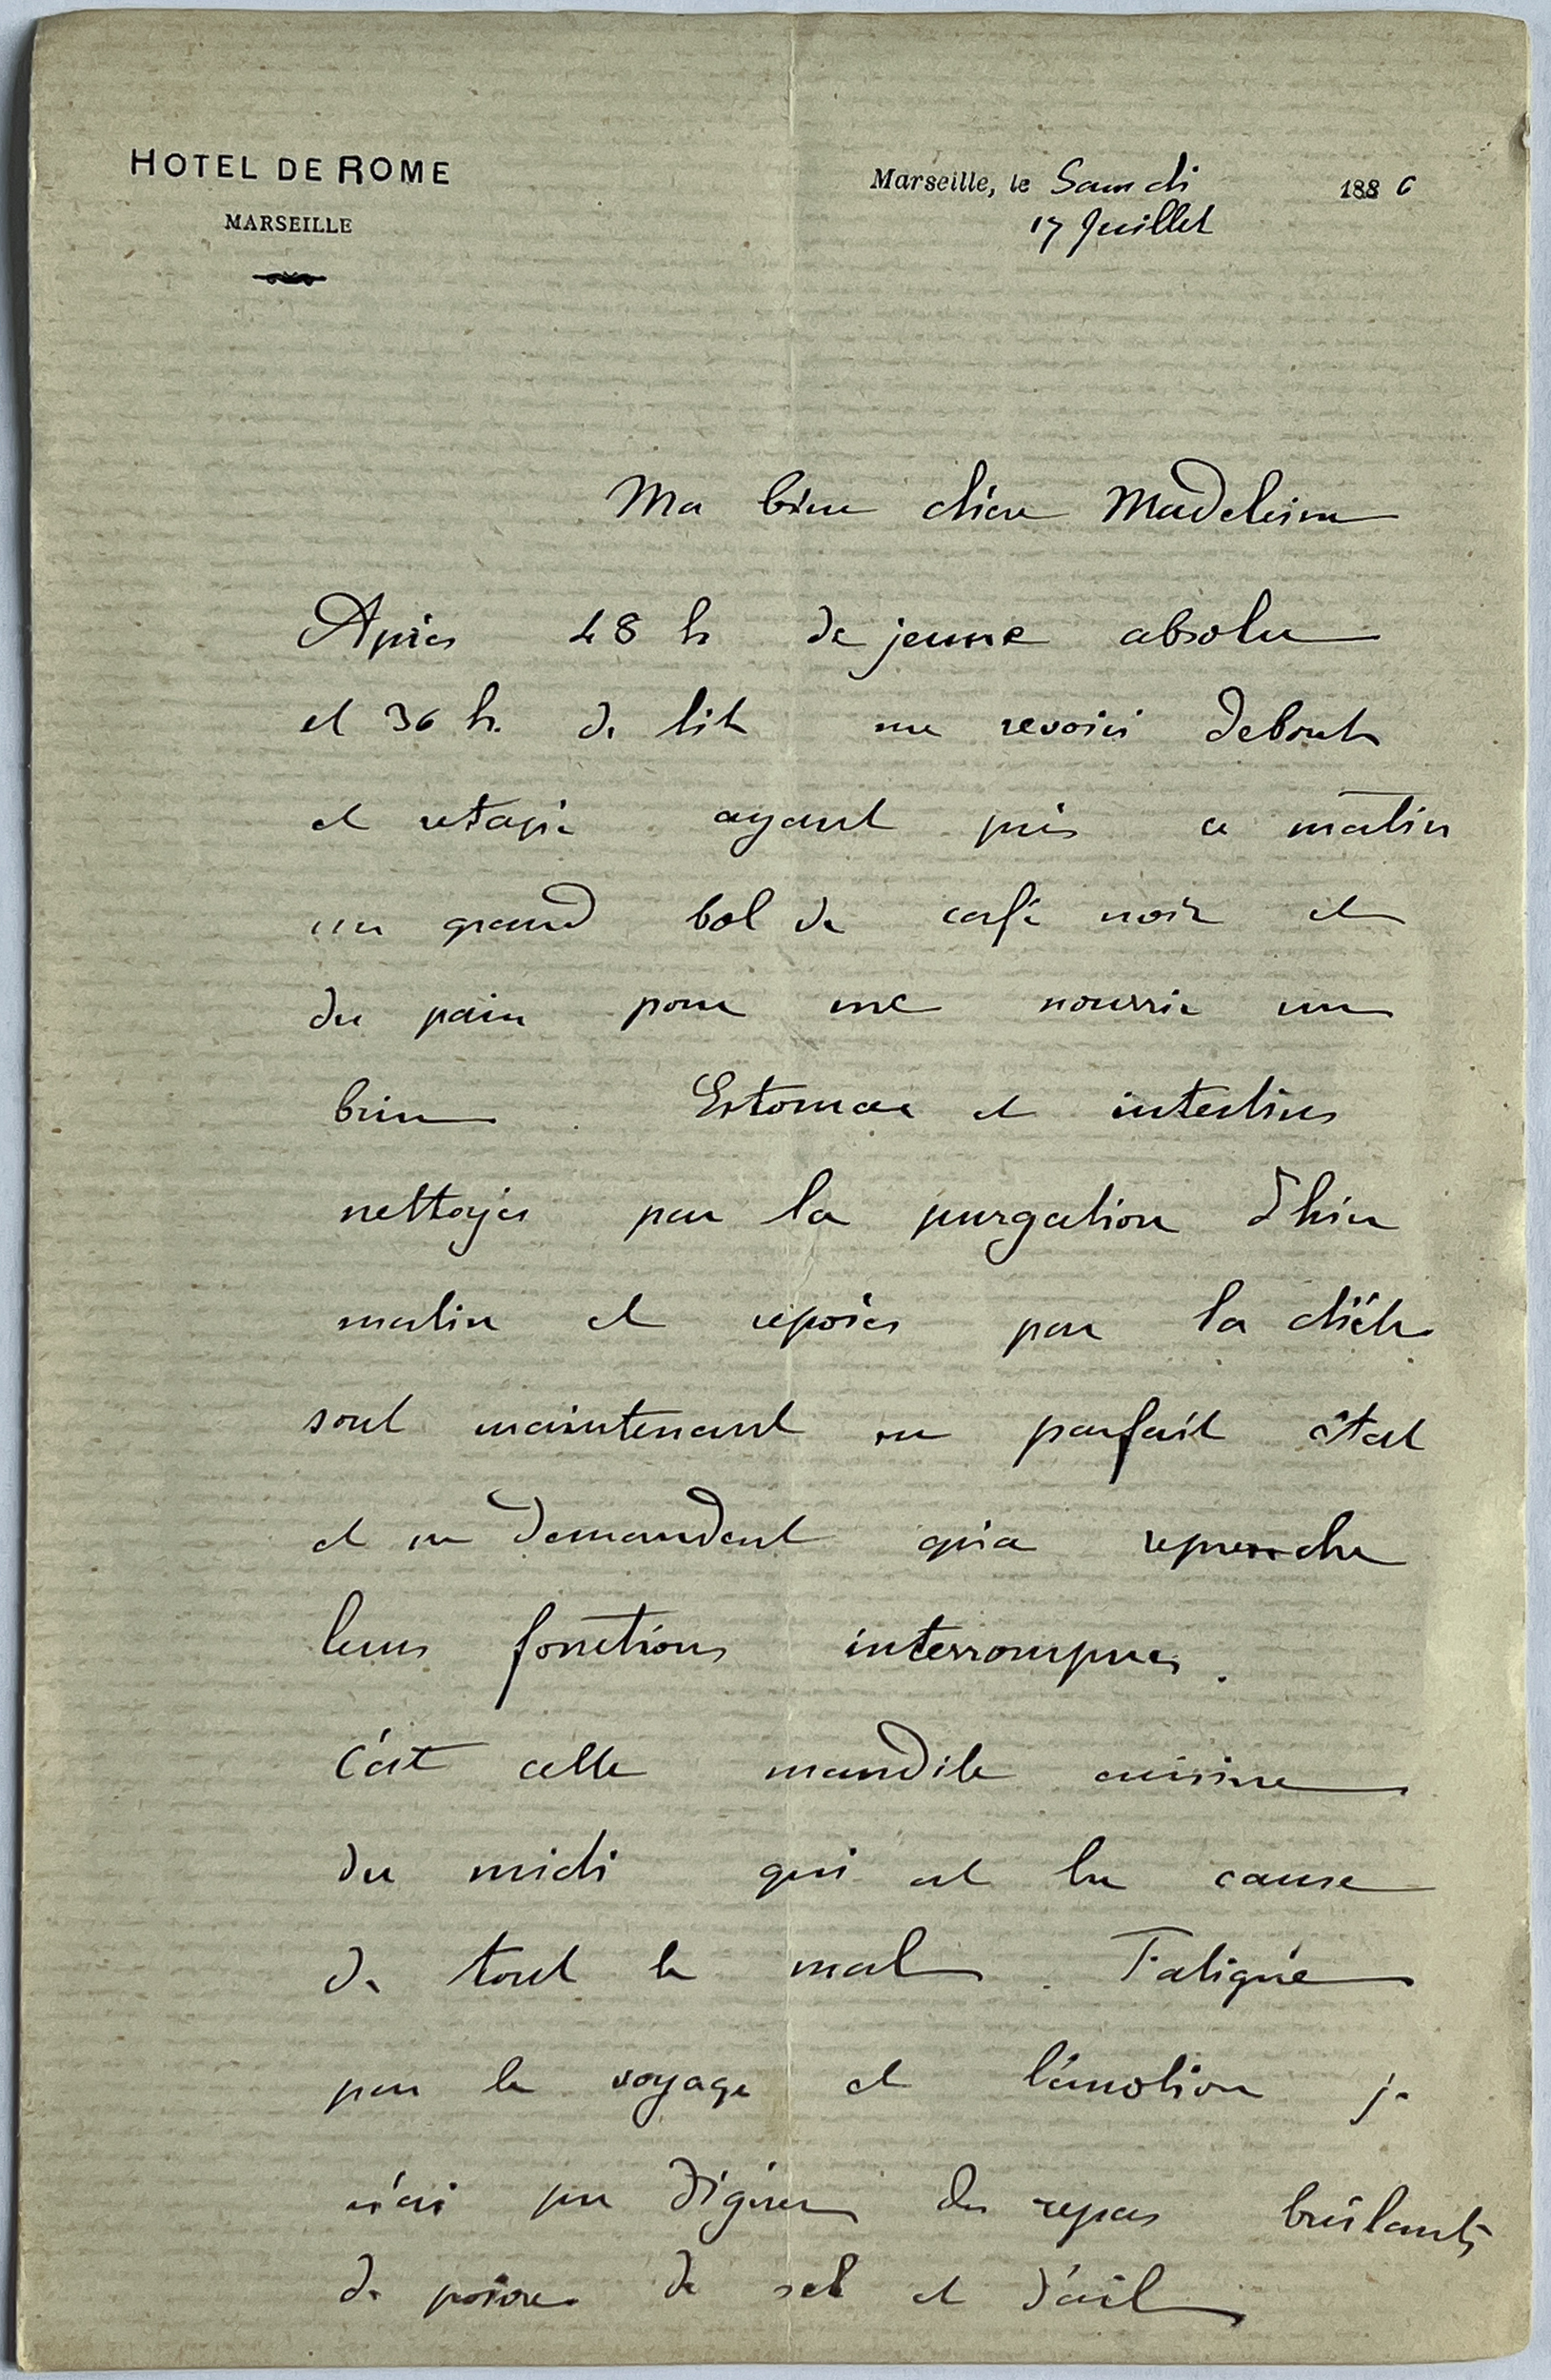 HOTEL DE ROME
MARSEILLE
Marseille, le Samedi 1886
17 Juillet
Ma bien chère Madeleine
Après 48 h de jeune absolu
et 36 h. de lit me revoici debout
et retapé ayant pris ce matin
un grand bol de café noir et
du pain pour me nourrir un
brin Estomac et intestins
nettoyés par la purgation d'hier
matin et reposés par la diète
sont maintenant en parfait état
et ne demandent qu'a reprendre
leurs fonctions interrompues.
C'est cette maudite cuisine
du midi qui est la cause
de tout le mal. Fatigué
par le voyage et l'émotion je
n'ai pu digérer des repas brûlants
de poivre de sel et d'ail